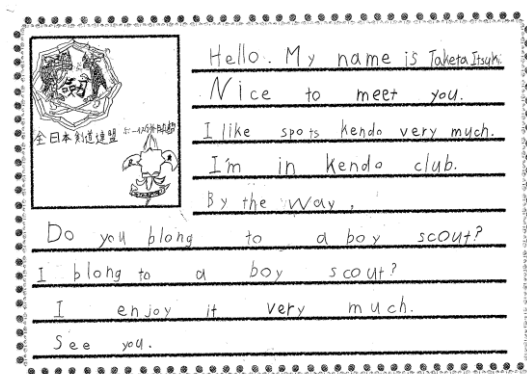 全日本剣道連盟
Hello. My name is Taketa Itsuki
Nice to meet you.
I like spots kendo very much.
I'm in kendo club.
By the way,
Do you blong to a boy scout?
I blong to a boy scout?
I enjoy it very much.
See you.